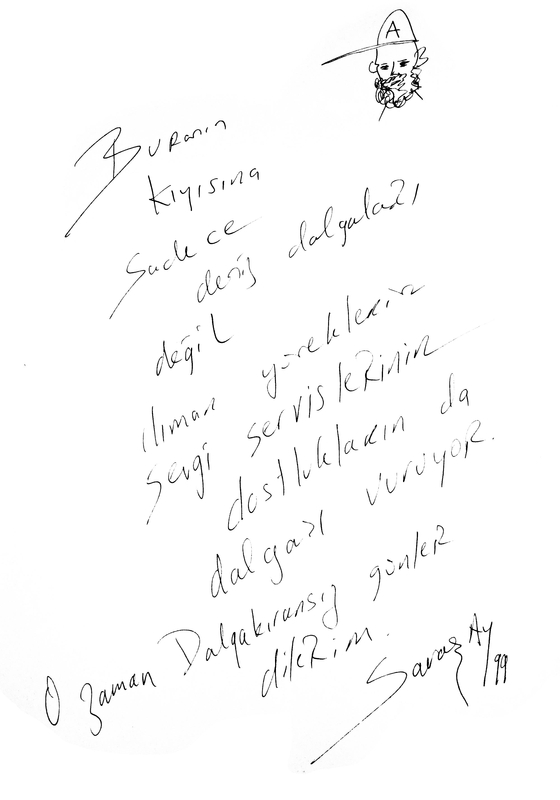 A
Buranın
kıyısına
Sadece
deniz dalgaları
değil
ılıman yüreklerin
sevgi servislerinin
dostlukların da
dalgası vuruyor.
O zaman Dalgakıransız günler
dilerim.
Savaş Ay
/99